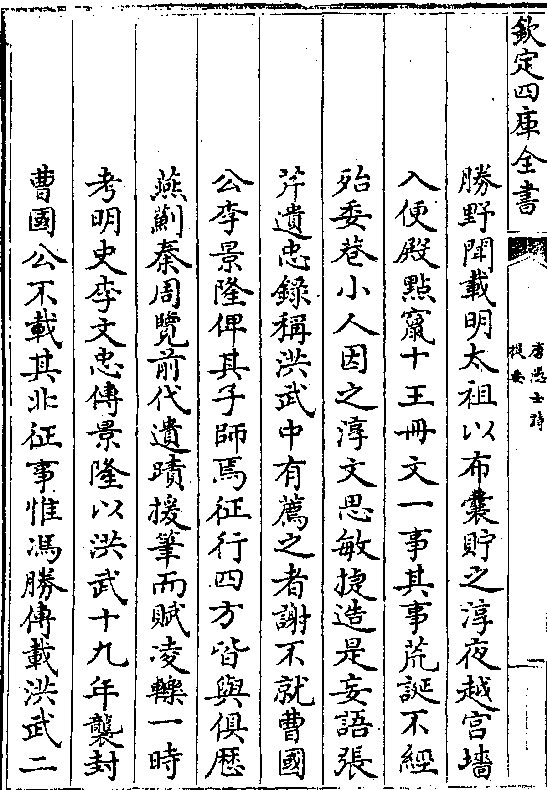 欽定四庫全書
唐愚士詩
提要
勝野聞載明太祖以布囊貯之淳夜越宮墻
入便殿點竄十王冊文一事其事荒誕不經
殆委巷小人因之淳文思敏捷造是妄語張
芹遺忠錄稱洪武中有薦之者謝不就曹國
公李景隆俾其子師焉征行四方皆與俱歴
燕薊秦周覽前代遺蹟援筆而賦凌轢一時
考明史李文忠傳景隆以洪武十九年襲封
曹國公不載其北征事惟馮勝傳載洪武二